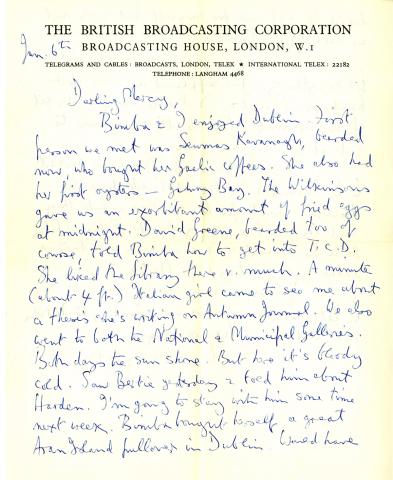 THE BRITISH BROADCASTING CORPORATION
BROADCASTING HOUSE, LONDON, W.1
TELEGRAMS AND CABLES: BROADCASTS, LONDON, TELEX ★ INTERNATIONAL TELEX: 22182
TELEPHONE: LANGHAM 4468
Jan. 6th
Darling Mercy,
Bimba & I enjoyed Dublin. First
person we met was Seumas Kavanagh, bearded
now, who bought her Gaelic coffees. She also had
her first oysters — Galway Bay. The Wilkinsons
gave us an exorbitant amount of fried eggs
at midnight. David Greene, bearded too of
course, told Bimba how to get into T.C.D.
She liked the library there v. much. A minute
(about 4 ft.) Italian girl came to see me about
a thesis she's writing on Autumn Journal. We also
went to both the National & Municipal Galleries.
Both days the sun shone. But here it's bloody
cold. Saw Bertie yesterday & told him about
Harden. I'm going to stay with him some time
next week. Bimba bought herself a great
Aran Island pullover in Dublin. Would have